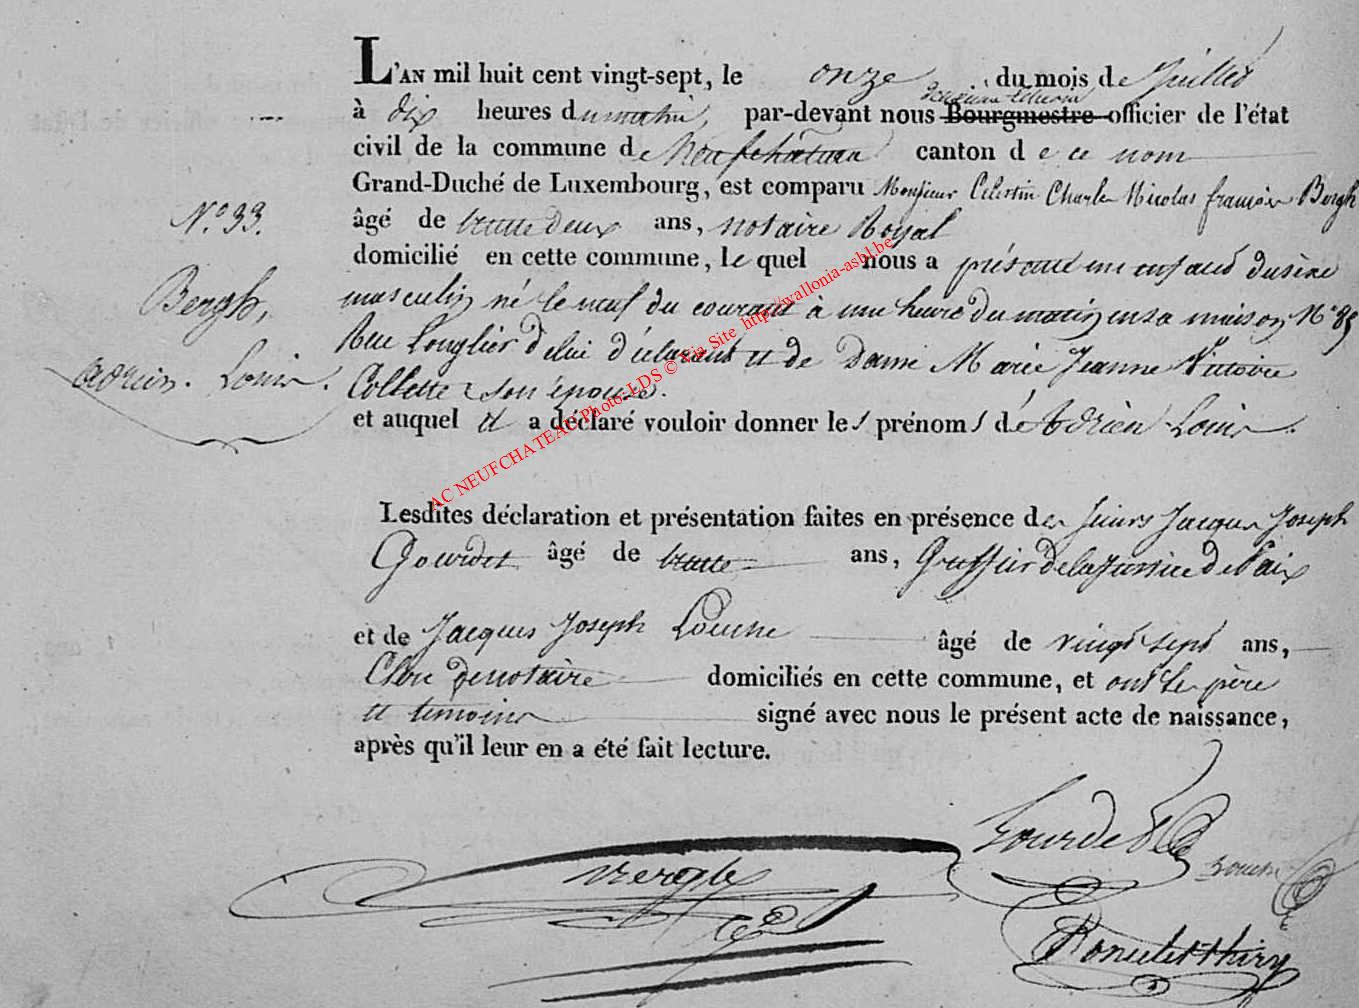 L'AN mil huit cent vingt-sept, le onze du mois de Juillet
à dix heures du matin, par-devant nous Bourgmestre officier de l'état
civil de la commune de Neufchateau canton de ce nom
Grand-Duché de Luxembourg, est comparu Monsieur Celestin Charles Nicolas françois Bergh
N.o 33.
âgé de trente deux ans, notaire Royal
domicilié en cette commune, le quel nous a présenté un enfant du sexe
Bergh,
masculin né le neuf du courant à une heure du matin en sa maison N.o 85
Rue Longlier de lui déclarant et de Dame Marie Jeanne Victoire
Adrien. Louis.
Collette son épouse.
et auquel il a déclaré vouloir donner les prénoms d'Adrien Louis.
AC NEUFCHATEAU Photo LDS © Via Site http://wallonia-asbl.be
Lesdites déclaration et présentation faites en présence des sieurs Jacques Joseph
Gourdet âgé de trente ans, Greffier de la Justice de Paix
et de Jacques Joseph âgé de vingt sept ans,
Clerc de notaire domiciliés en cette commune, et ont le père
et temoins signé avec nous le présent acte de naissance,
après qu'il leur en a été fait lecture.
Gourdet
Bergh